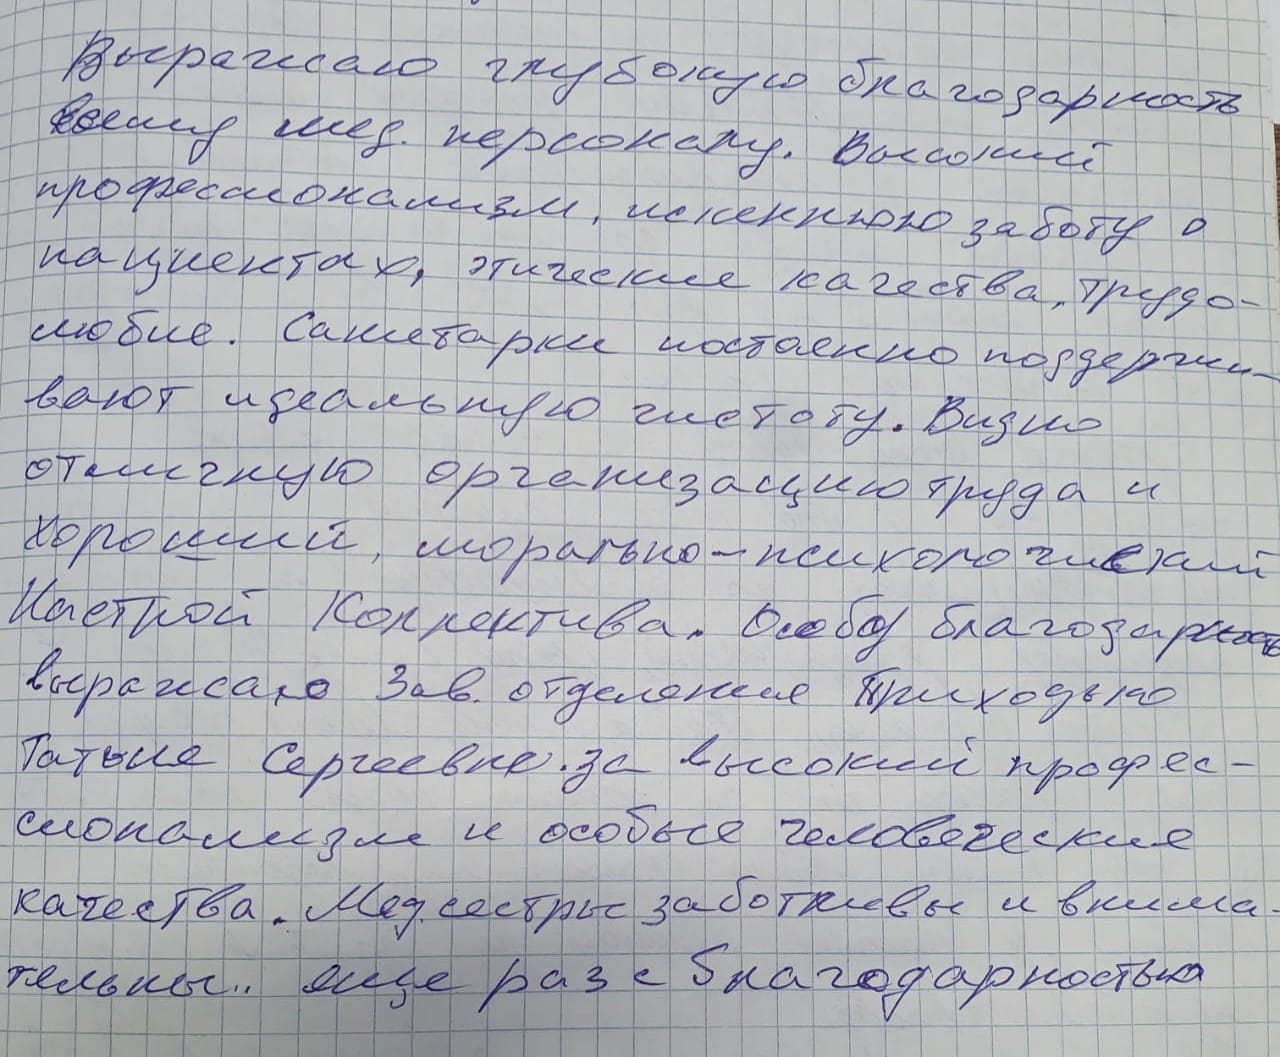 Выражаю глубокую благодарность
всему мед. персоналу. Высокий
профессионализм, искеннюю заботу о
пациентах, этические качества, трудо-
любие. Санитарки постоенно поддержи-
вают идеальную чистоту. Видно
отличную организацию труда и
хороший, морально-психологический
Настрой Коллектива. Особу благодарность
выражаю Зав. отделение Приходько
Татьне Сергеевне. за высокий профес-
сионализм и особые человеческие
качества. Медсестры заботливы и внима-
тельны.. еще раз с благодарностью